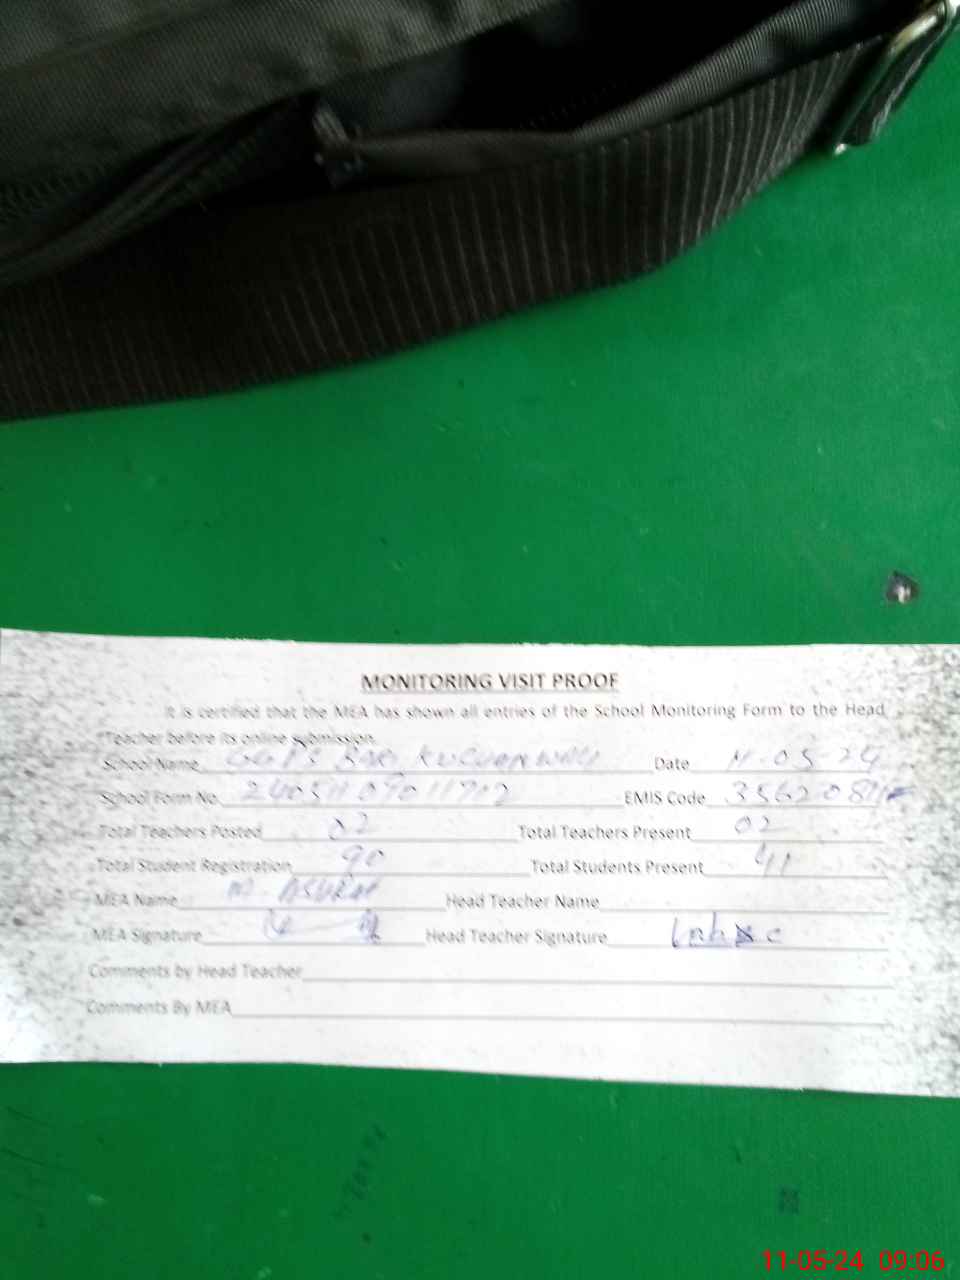 MONITORING VISIT PROOF
It is certified that the MEA has shown all entries of the School Monitoring Form to the Head
Teacher before its online submission.
School Name GGPS Date 11-05-24
School Form No. EMIS Code
Total Teachers Posted 02 Total Teachers Present 02
Total Student Registration 90 Total Students Present 41
MEA Name M ASHRAF Head Teacher Name
MEA Signature Head Teacher Signature
Comments by Head Teacher
Comments By MEA
11-05-24 09:06